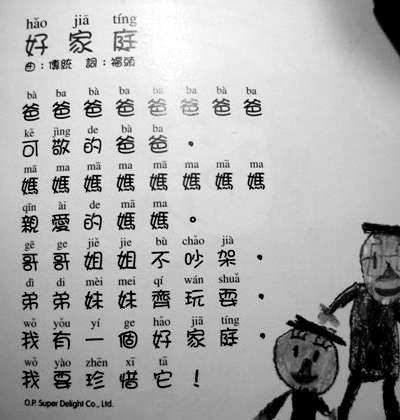 hǎo jiā tíng
好家庭
曲：傳統 詞：福頭
bà ba bà ba bà ba bà ba
爸爸爸爸爸爸爸爸
kě jìng de bà ba
可敬的爸爸，
mā ma mā ma mā ma mā ma
媽媽媽媽媽媽媽媽
qīn ài de mā ma
親愛的媽媽。
gē ge jiě jie bù chǎo jià
哥哥姐姐不吵架，
dì di mèi mei qí wán shuǎ
弟弟妹妹齊玩耍，
wǒ yǒu yí ge hǎo jiā tíng
我有一個好家庭，
wǒ yào zhēn xī tā
我要珍惜它！
O.P. Super Delight Co., Ltd.